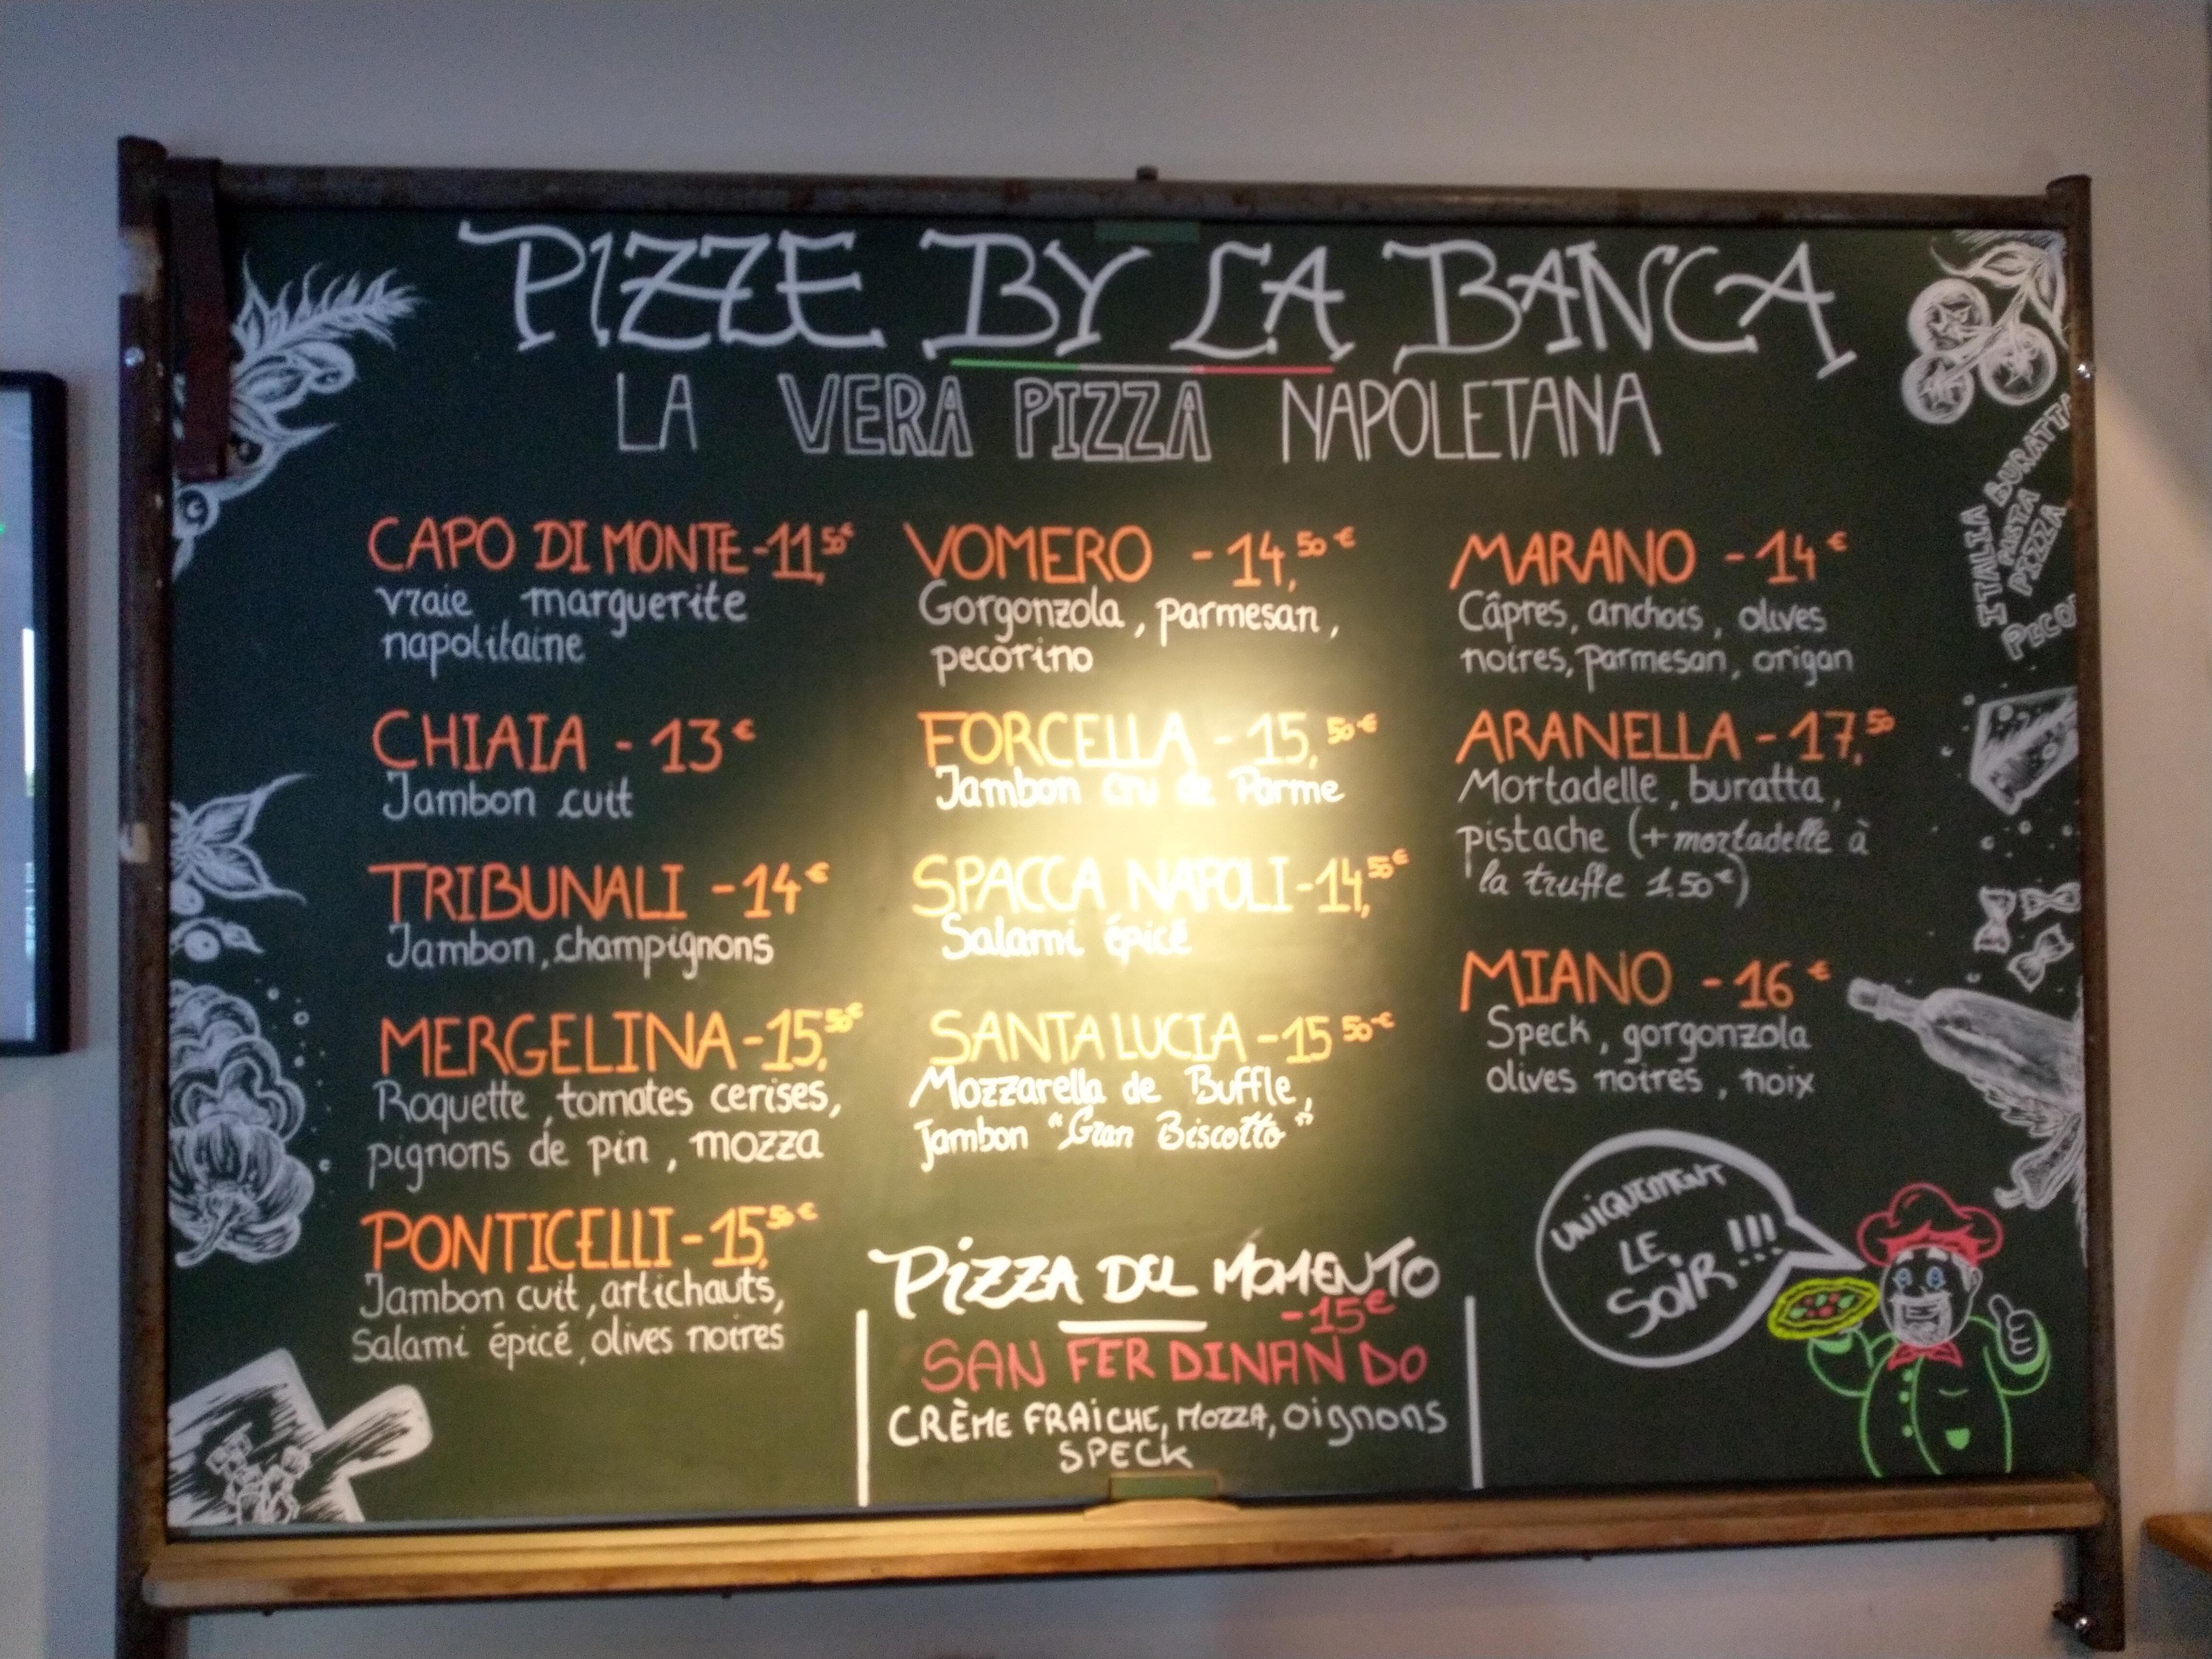 PIZZE BY LA BANCA
LA VERA PIZZA NAPOLETANA
CAPO DI MONTE -11,50€
vraie marguerite
napolitaine
CHIAIA - 13€
Jambon cuit
TRIBUNALI - 14€
Jambon, champignons
MERGELINA - 15,50€
Roquette, tomates cerises,
pignons de pin, mozza
PONTICELLI - 15,50€
Jambon cuit, artichauts,
Salami épicé, olives noires
VOMERO - 14,50€
Gorgonzola, parmesan,
pecorino
FORCELLA - 15,50€
Jambon cru de Parme
SPACCA NAPOLI - 14,50€
Salami épicé
SANTA LUCIA - 15 50€
Mozzarella de Buffle,
jambon "Gran Biscotto"
PIZZA DEL MOMENTO
- 15€
SAN FERDINANDO
CRÈME FRAICHE, MOZZA, oignons
SPECK
MARANO - 14€
Câpres, anchois, olives
noires, parmesan, origan
ARANELLA - 17,50
Mortadelle, buratta,
pistache (+ mortadelle à
la truffe 1,50€)
MIANO - 16€
Speck, gorgonzola
olives noires, noix
UNIQUEMENT
LE
SOIR!!!
ITALIA
BURATTA
PASTA
PIZZA